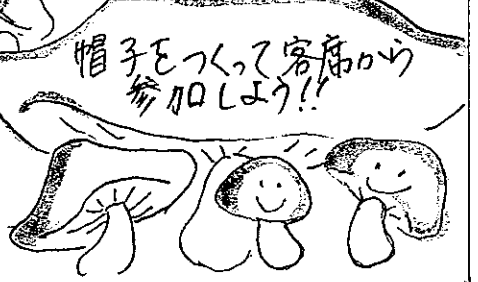 帽子をつくって客席から
参加しよう!!